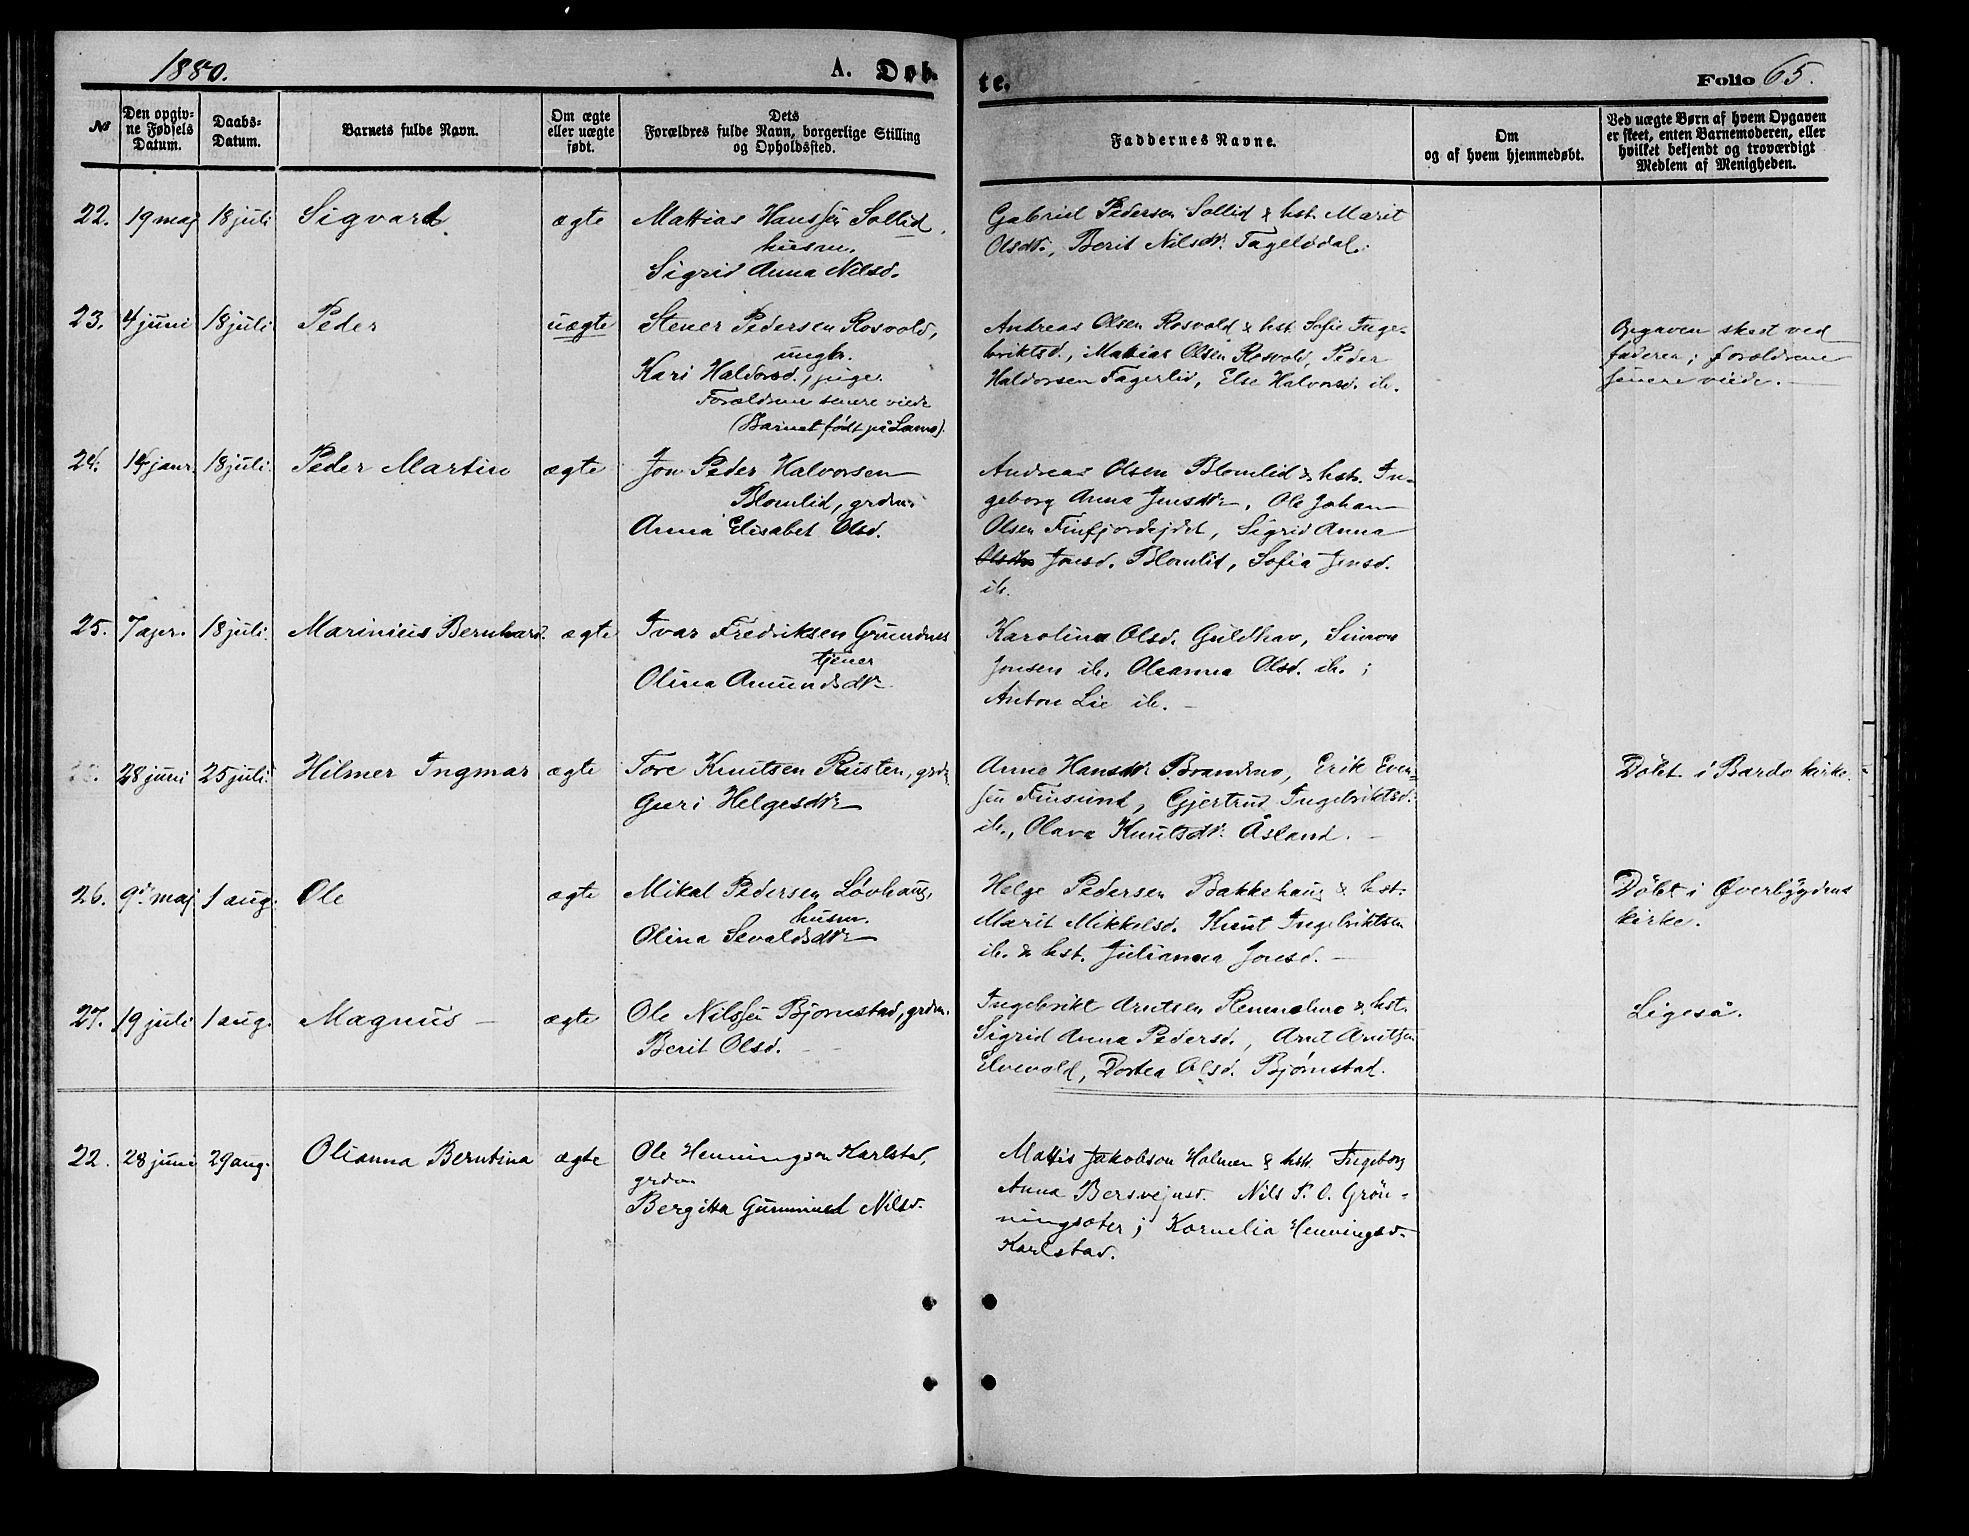 1880.
A. Døb-
te.
Folio 65.
№
Den opgiv-
ne Fødsels
Datum.
Daabs-
Datum.
Barnets fulde Navn.
Om ægte
eller uægte
født.
Dets
Forældres fulde Navn, borgerlige Stilling
og Opholdssted.
Faddernes Navne.
Om
og af hvem hjemmedøbt.
Ved uægte Børn af hvem Opgaven
er skeet, enten Barnemoderen, eller
hvilket bekjendt og troværdigt
Medlem af Menigheden.
22. 19 maj 18 juli Sigvard. ægte
Mattias Hanssen Sollid,
husm.
Sigrid Anna Nilsd.
Gabriel Pedersen Sollid & hst. Marit
Olsdtr., Berit Nilsdtr. Fagelidal.
23. 4 juni 18 juli Peder uægte
Stener Pedersen Rosvold,
ungk.
Kari Haldorsd., pige.
Forældrene senere viede
(Barnet født på Lamo).
Andreas Olsen Rosvold & hst. Sofie Inge-
briktsd., Matias Olsen Rosvold, Peder
Haldorsen Fagerlid, Else Halvorsd. ib.
Opgaven skeet ved
faderen; forældrene
senere viede.
24. 14 janr. 18 juli. Peder Martin ægte
Jon Peder Halvorsen
Blomlid, grdm.
Anna Elisabet Olsd.
Andreas Olsen Blomlid & hst. In-
geborg Anna Jensdtr, Ole Johan
Olsen Finfjordejdet, Sigrid Anna
Olsdtr Jonsd. Blomlid, Sofia Jensd.
ib.
25. 7 apr. 18 juli. Marinius Bernhard. ægte
Ivar Fredriksen Grundnes
tjener
Olina Amundsdtr
Karolina Olsd. Guldhav, Simon
Jonsen ib. Oleanna Olsd. ib.;
Anton Lie ib.
28 juni 25 juli. Hilmer Ingmar ægte
Tore Knutsen Rusten, grdm
Guri Helgesdtr
Anne Hansdtr Brandmo, Erik Even-
sen Finsund, Gjertrud Ingebriktsd.
ib., Olava Knutsdtr. Åsland.
Döbt i Bardo kirke.
26. 9. maj 1 aug. Ole ægte
Mikal Pedersen Løvhaug,
husm.
Olina Sevaldsdtr
Helge Pedersen Bakkehaug & hst.
Marit Mikkelsd. Knut Ingebriktsen
ib. & hst. Julianna Jonsd.
Döbt i Øverbygdens
kirke.
27. 19 juli 1 aug. Magnus ægte
Ole Nilssen Bjørnstad, grdm.
Berit Olsd.
Ingebrikt Arntsen Rennalmo & hst.
Sigrid Anna Pedersd., Arnt Arntsen
Elvevold, Dortea Olsd. Bjørnstad.
Ligeså.
22. 28 juni 29 aug. Olianna Berntina ægte
Ole Henningsen Karlstad,
grdm.
Bergitta Gunnild Nilsd.
Mattis Jakobson Holmen & hst. Ingeborg
Anna Bersvejnsd. Nils P. O. Grön-
ningsæter; Kornelia Henningsd.
Karlstad.